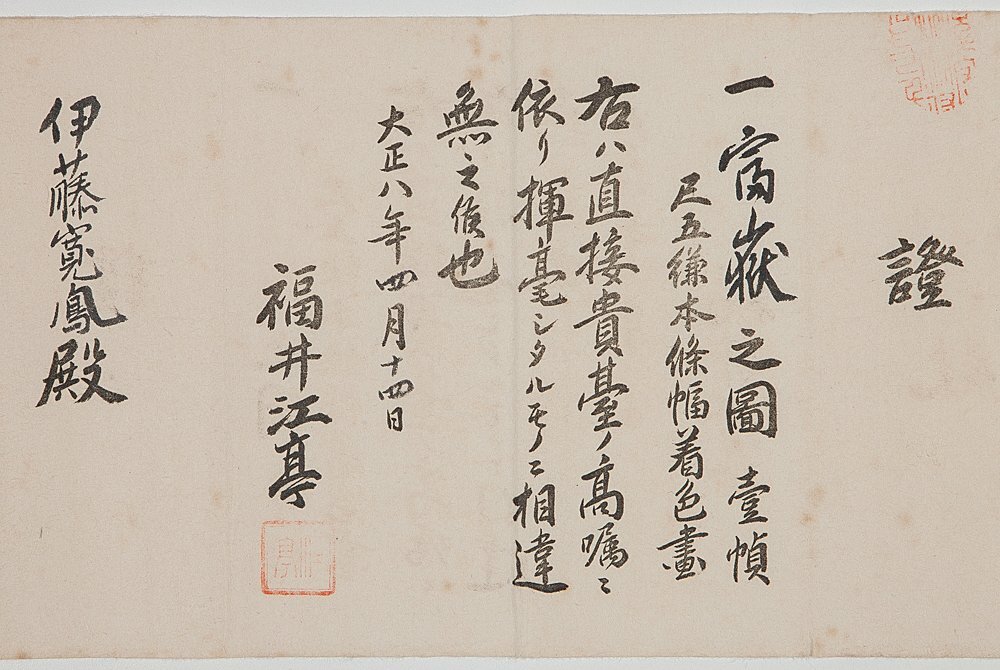 證
一富嶽之圖 壹幀
尺五縑本條幅着色畫
右ハ直接貴臺ノ高嘱ニ
依リ揮毫シタルモノニ相違
無之候也
大正八年四月十四日
福井江亭
江亭
伊藤寛鳳殿